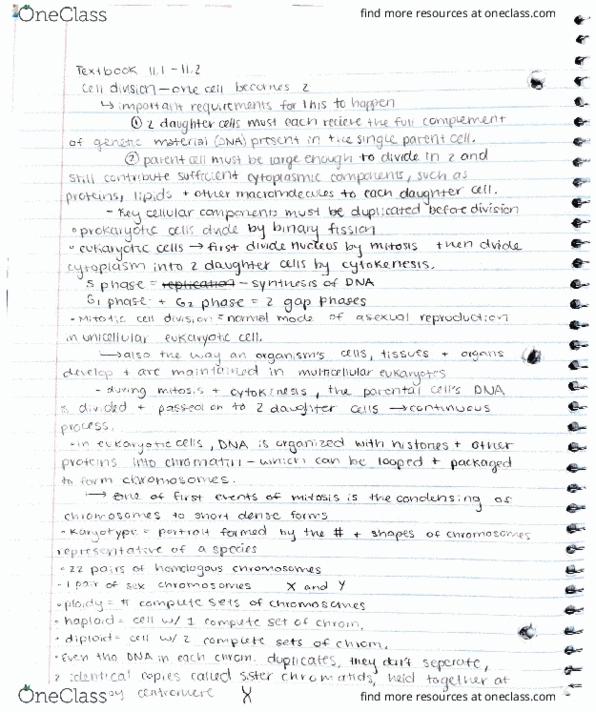 OneClass
find more resources at oneclass.com
Textbook 11.1 - 11.2
Cell division - one cell becomes 2
↳ important requirements for this to happen
① 2 daughter cells must each recieve the full complement
of genetic material (DNA) present in the single parent cell.
② parent cell must be large enough to divide in 2 and
still contribute sufficient cytoplasmic components, such as
proteins, lipids + other macromolecules to each daughter cell.
- Key cellular components must be duplicated before division
• prokaryotic cells divide by binary fission
• eukaryotic cells → first divide nucleus by mitosis then divide
cytoplasm into 2 daughter cells by cytokenesis.
S phase = replication - synthesis of DNA
G1 phase + G2 phase = 2 gap phases
• Mitotic cell division = normal mode of asexual reproduction
in unicellular eukaryotic cell.
↳ also the way an organism's cells, tissues + organs
develop + are maintained in multicellular eukaryotes
- during mitosis + cytokinesis, the parental cell's DNA
is divided + passed on to 2 daughter cells → continuous
process.
• in eukaryotic cells, DNA is organized with histones + other
proteins into chromatin - which can be looped + packaged
to form chromosomes.
↳ one of first events of mitosis is the condensing of
chromosomes to short dense forms
• Karyotype = portrait formed by the # + shapes of chromosomes
representative of a species
• 22 pairs of homologous chromosomes
• 1 pair of sex chromosomes X and Y
• ploidy = # compute sets of chromosomes
• haploid = cell w/ 1 compute set of chrom.
• diploid = cell w/ 2 complete sets of chrom.
• Even tho DNA in each chrom. duplicates, they don't seperate,
2 identical copies called sister chromatids, held together at
OneClass by centromere X
find more resources at oneclass.com